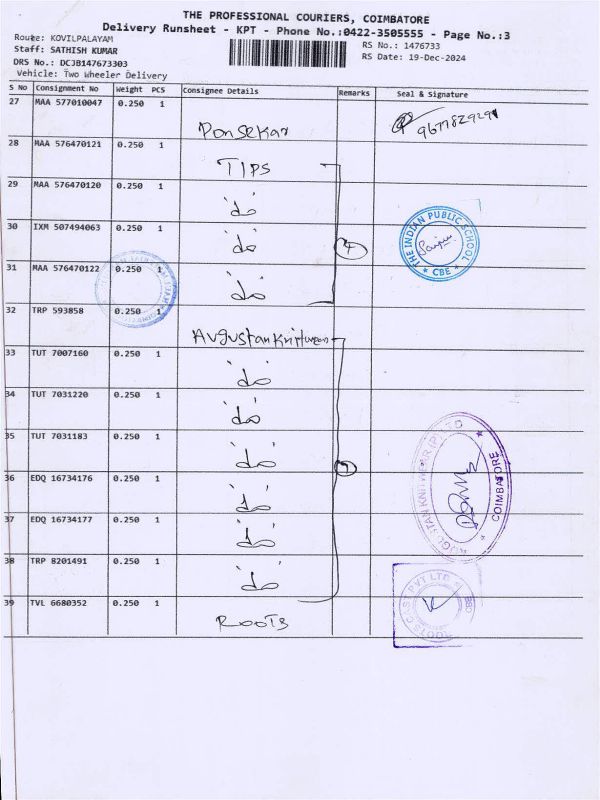 THE PROFESSIONAL COURIERS, COIMBATORE
Delivery Runsheet - KPT - Phone No.:0422-3505555 - Page No.:3
Route: KOVILPALAYAM
RS No.: 1476733
Staff: SATHISH KUMAR
RS Date: 19-Dec-2024
DRS No.: DCJB147673303
Vehicle: Two Wheeler Delivery
S No Consignment No Weight PCS Consignee Details Remarks Seal & Signature
27 MAA 577010047 0.250 1 Ponsekar
28 MAA 576470121 0.250 1 TIPS
29 MAA 576470120 0.250 1 "do"
30 IXM 507494063 0.250 1 "do" 4
THE INDIAN PUBLIC SCHOOL
CBE
31 MAA 576470122 0.250 1 "do"
32 TRP 593858 0.250 1
33 TUT 7007160 0.250 1 "do"
34 TUT 7031220 0.250 1 "do"
35 TUT 7031183 0.250 1 "do" 7
AUGUSTAN KNITWEAR (P) LTD
COIMBATORE
36 EDQ 16734176 0.250 1 "do"
37 EDQ 16734177 0.250 1 "do"
38 TRP 8201491 0.250 1 "do"
39 TVL 6680352 0.250 1 ROOTS